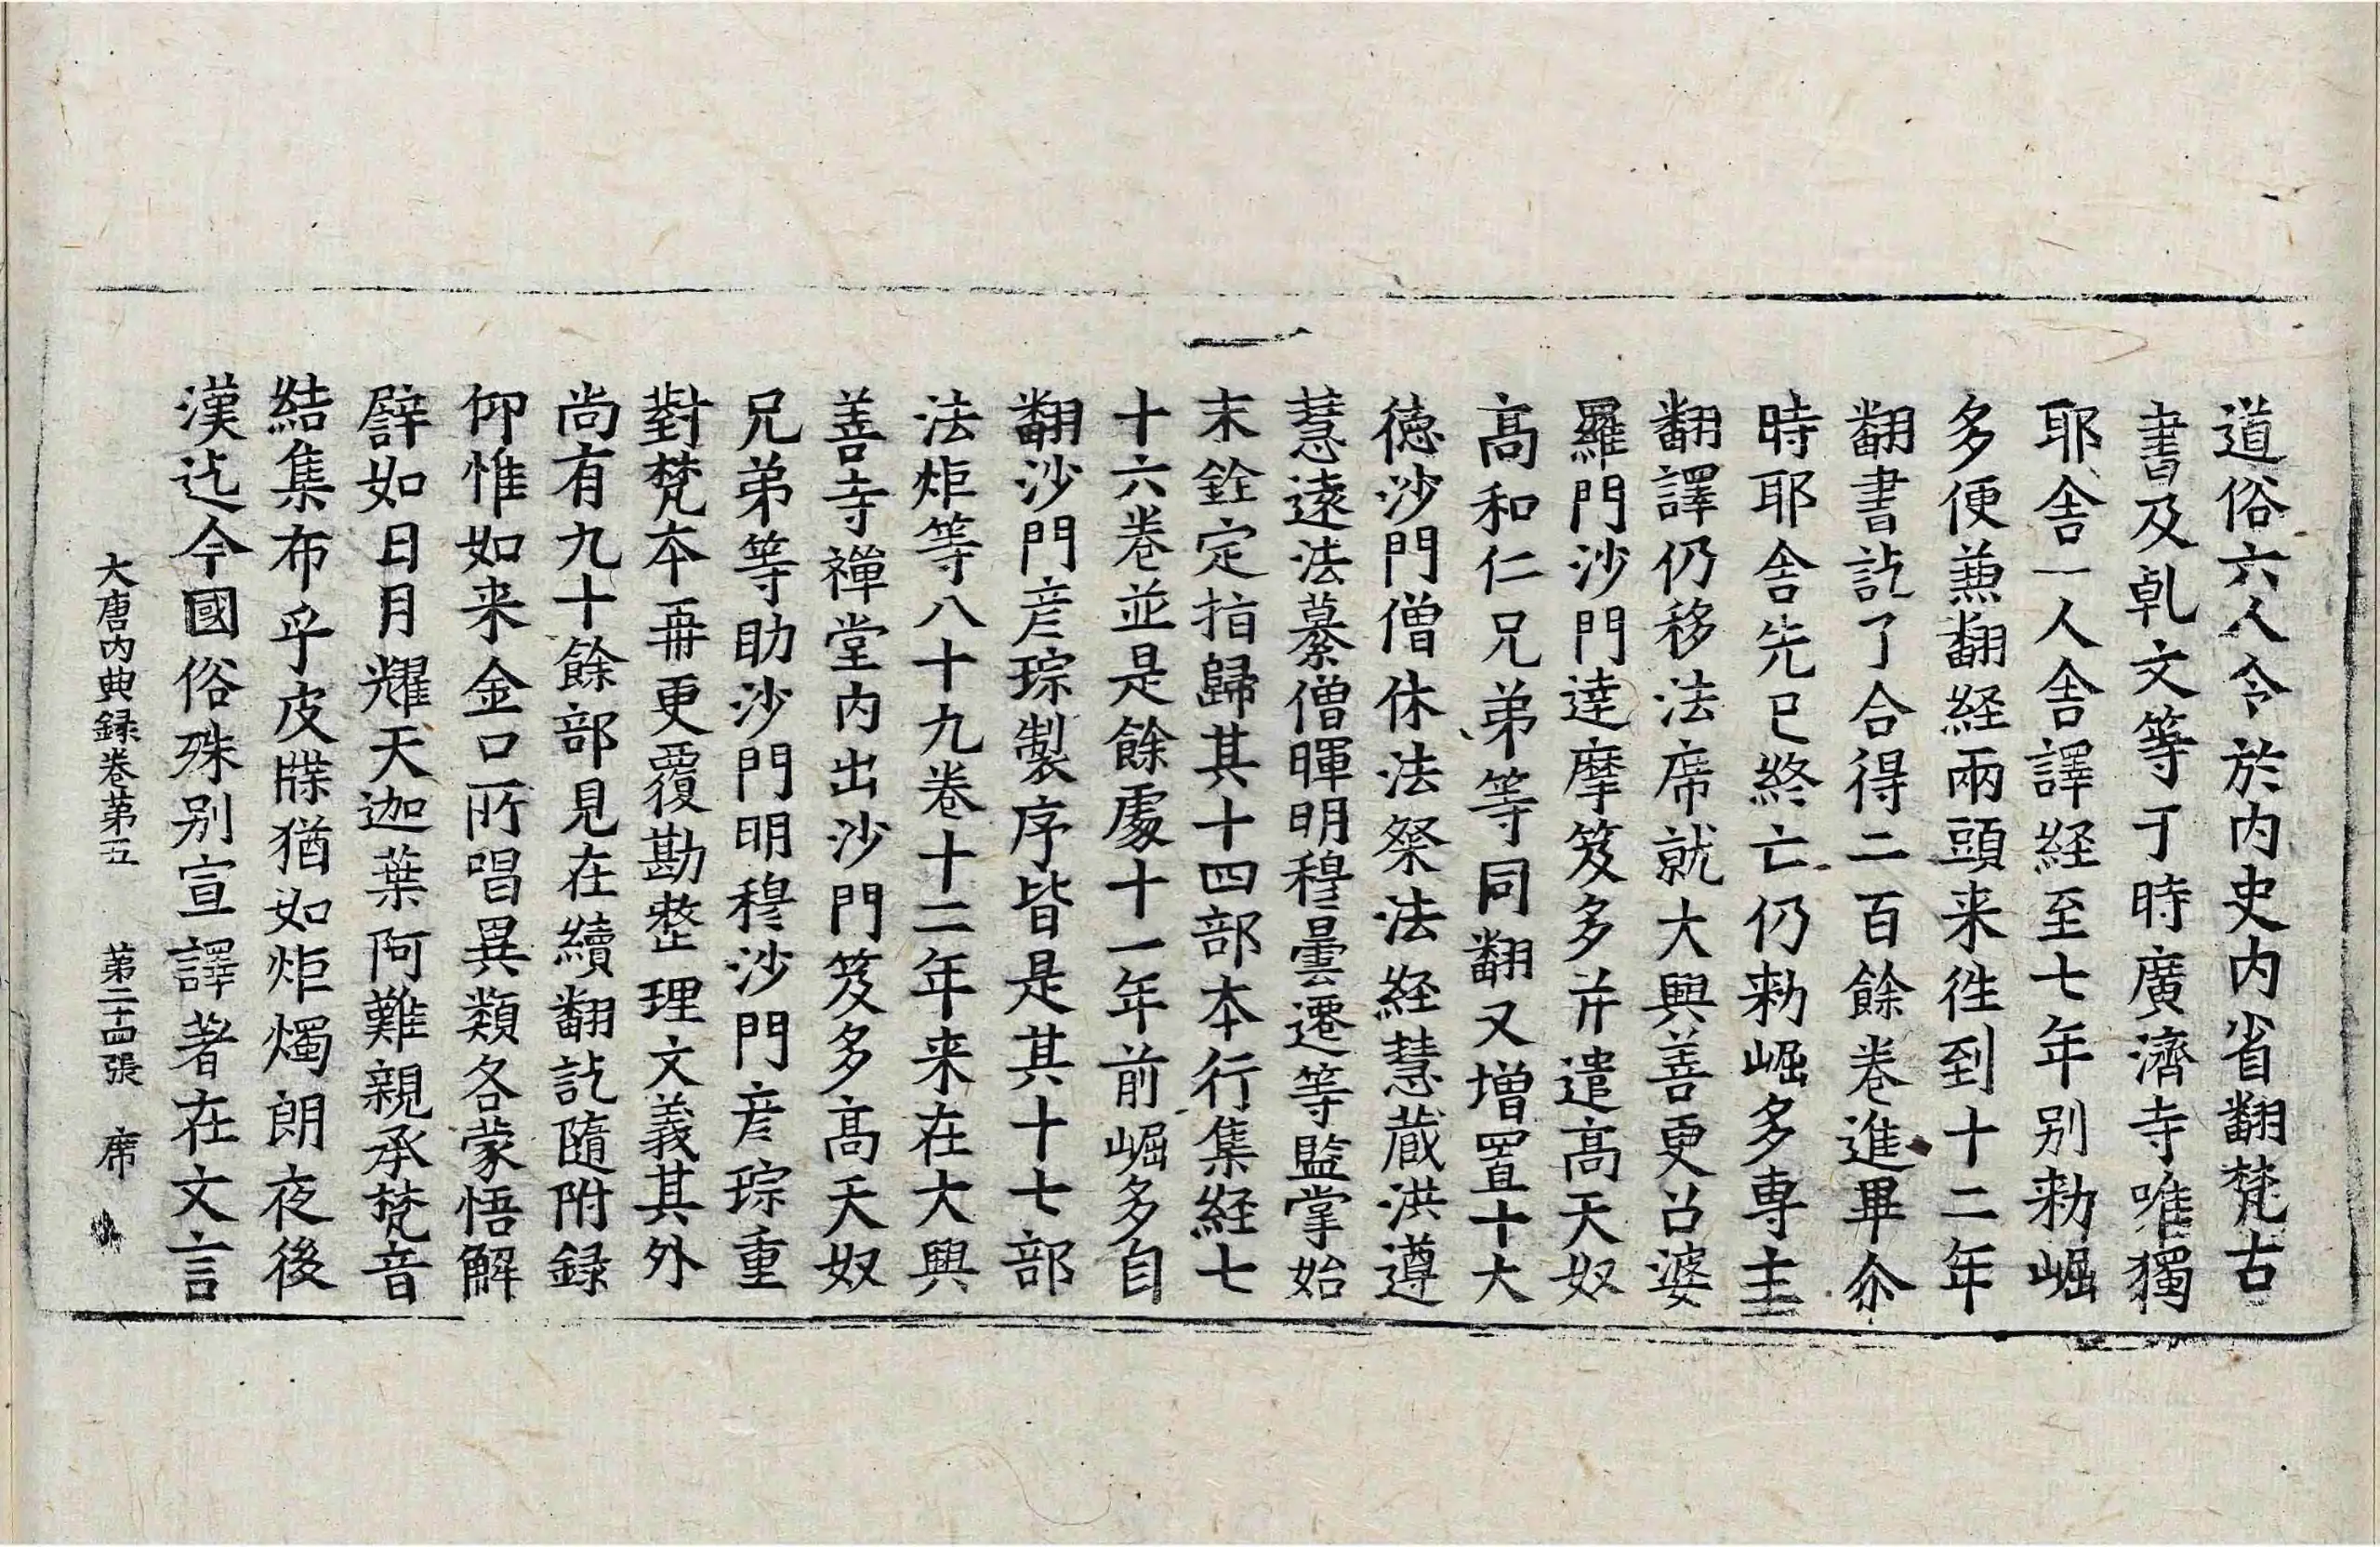 道俗六人令於内史内省翻梵古
書及乹文等于時廣濟寺唯獨
耶舎一人舎譯経至七年别勑崛
多便𠔥翻経兩頭来徃到十二年
翻書訖了合得二百餘卷進畢尒
時耶舎先已終亡仍勑崛多専主
翻譯仍移法席就大興善更召婆
羅門沙門達摩笈多并遣髙天奴
髙和仁兄弟等同翻又増置十大
徳沙門僧休法粲法経慧蔵洪遵
慧遠法纂僧暉明穆曇遷等監掌始
末銓定指歸其十四部本行集経七
十六卷並是餘處十一年前崛多自
翻沙門彦琮製序皆是其十七部
法炬等八十九卷十二年来在大興
善寺禪堂内出沙門笈多髙天奴
兄弟等助沙門明穆沙門彦琮重
對梵本再更覆勘整理文義其外
尚有九十餘部見在續翻訖隨附録
仰惟如来金口所唱異類各蒙悟解
譬如日月耀天迦葉阿難親承梵音
結集布乎皮牒猶如炬燭朗夜後
漢迄今國俗殊别宣譯著在文言
大唐内典録卷第五　第二十四張　席